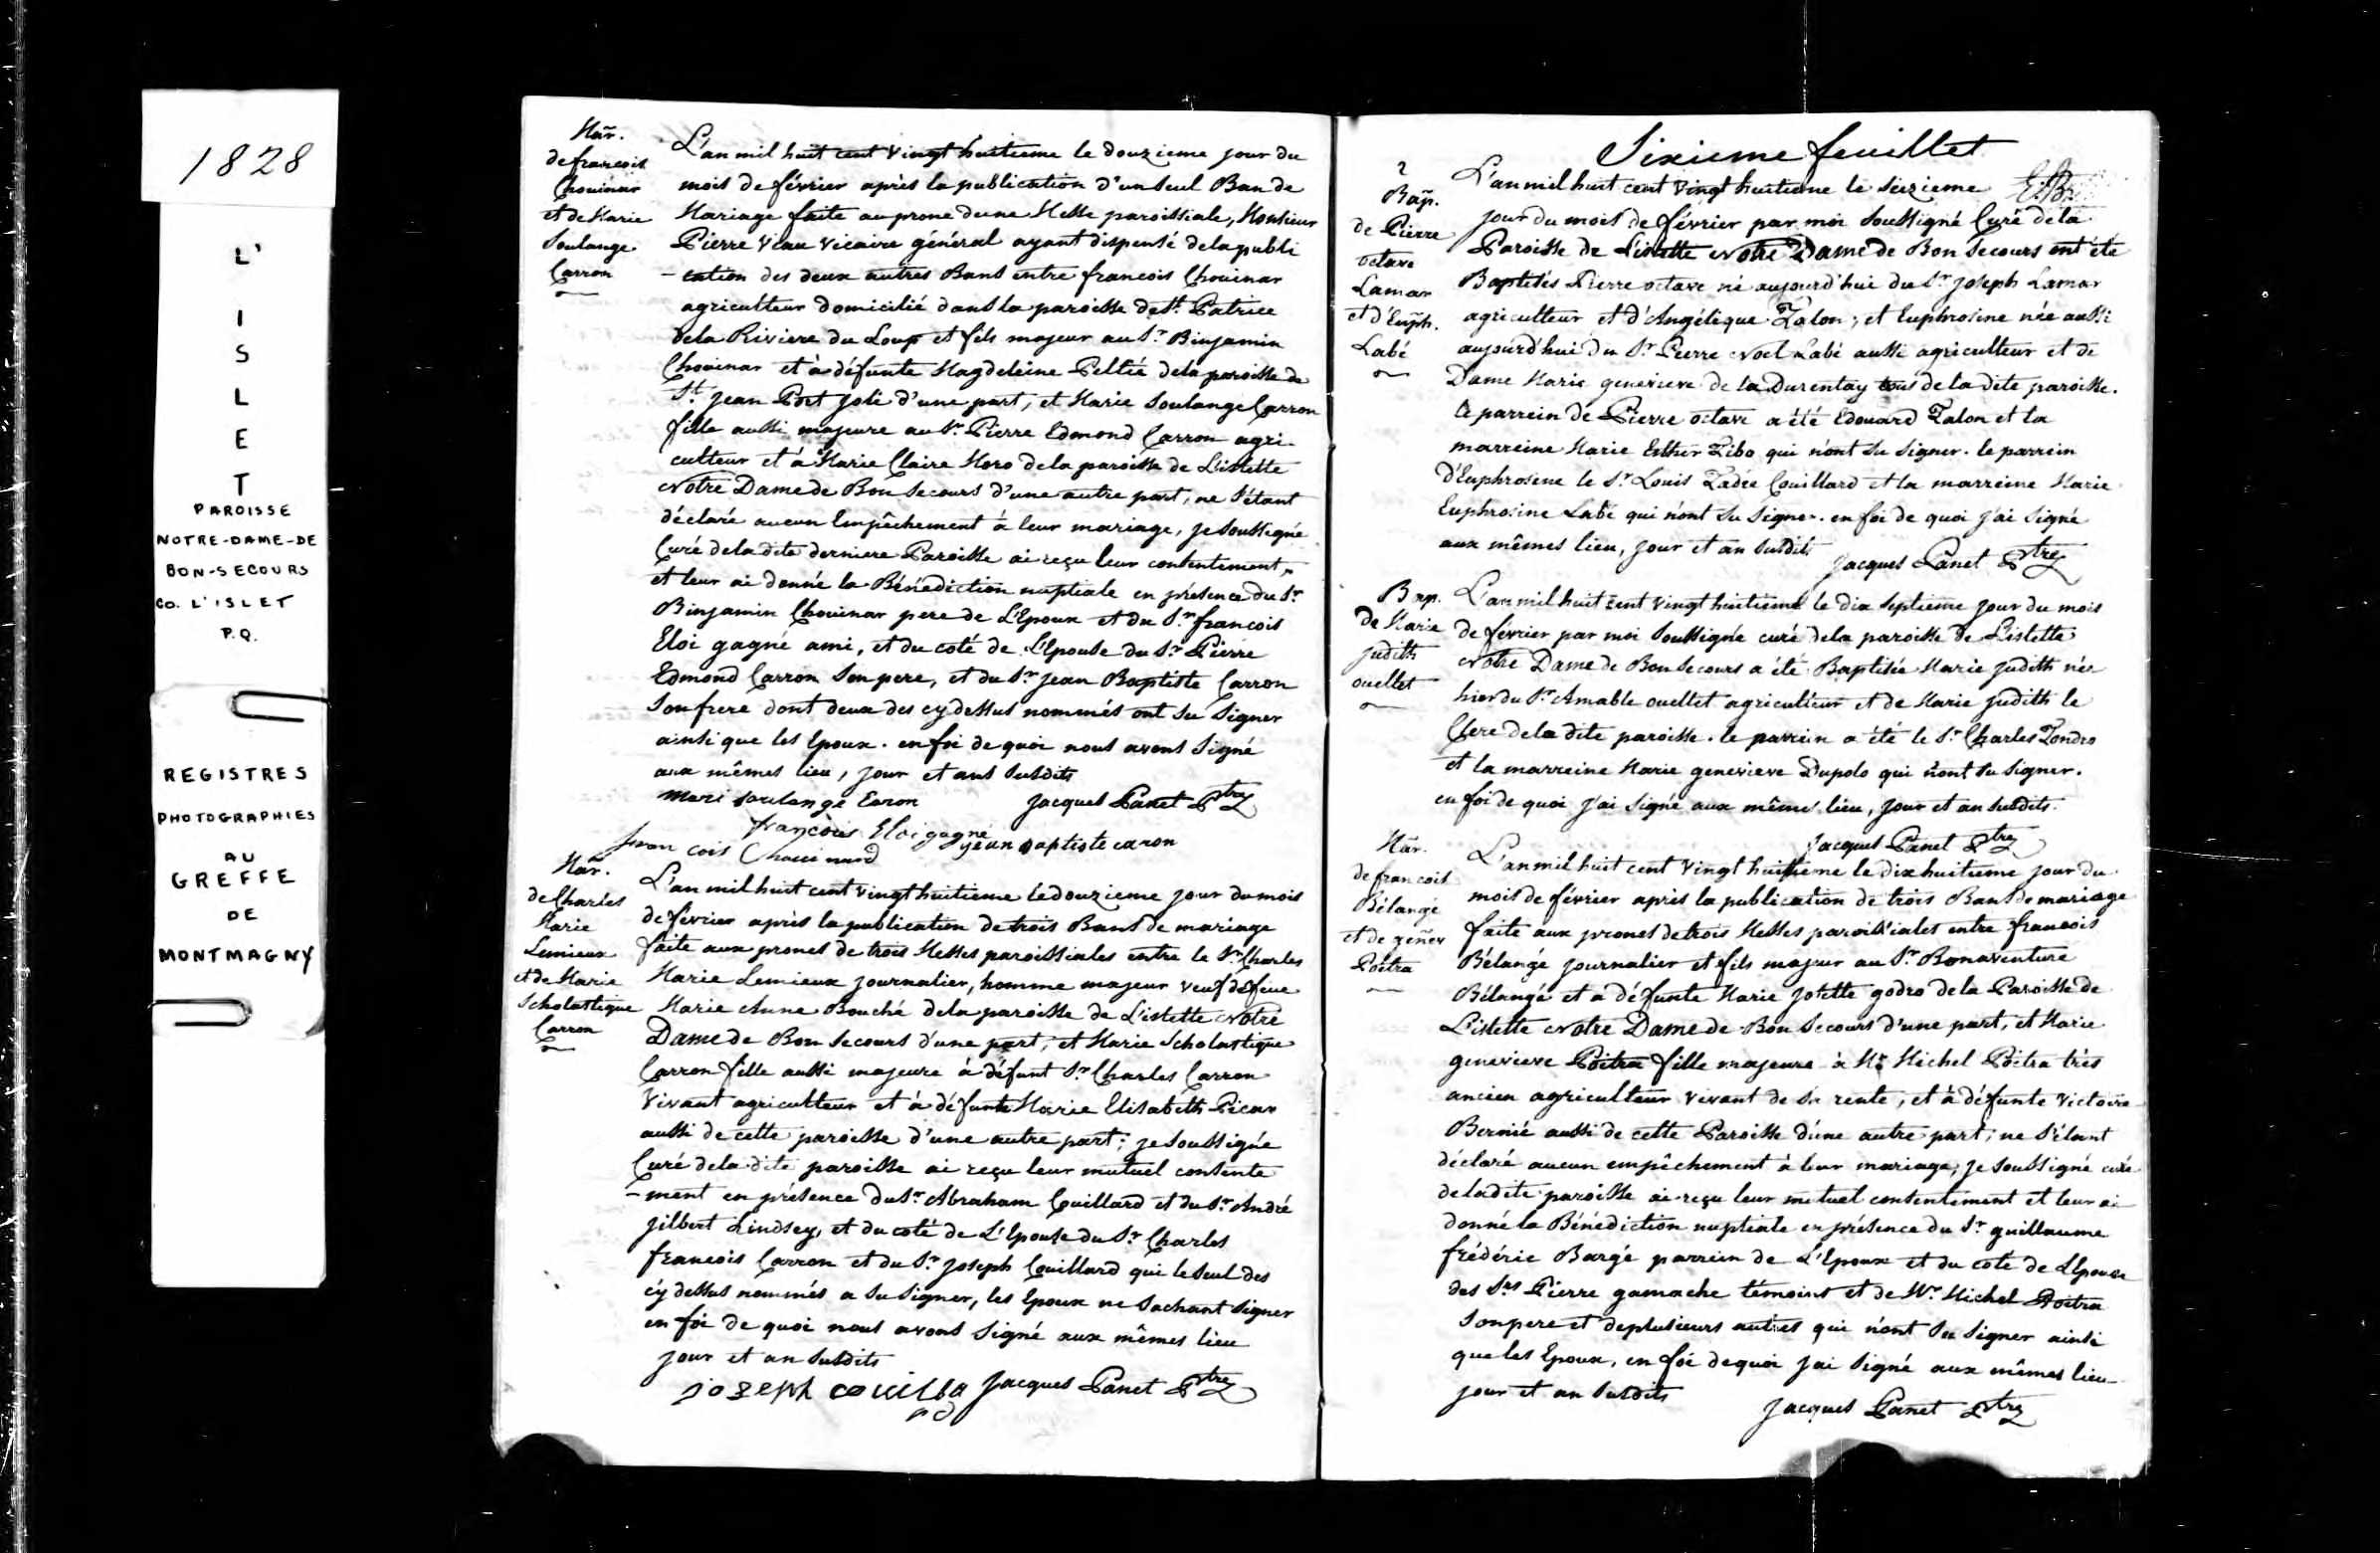 1828
L'
I
S
L
E
T
PAROISSE
NOTRE-DAME-DE
BON-SECOURS
CO. L'ISLET
P.Q.
REGISTRES
PHOTOGRAPHIES
AU
GREFFE
DE
MONTMAGNY
Mar.
de francois
Chouinar
et de Marie
Soulange
Carron
L'an mil huit cent vingt huitieme le douzieme jour du
mois de février après la publication d'un seul Ban de
Mariage faite au prone d'une Messe paroissiale, Monsieur
Pierre Viau Vicaire général ayant dispensé de la publi
-cation des deux autres Bans entre francois Chouinar
agriculteur domicilié dans la paroisse de St. Patrice
de la Riviere du Loup et fils majeur au Sr. Binjamin
Chouinar et à défunte Magdeleine Peltié de la paroisse de
St. Jean Port Joli d'une part, et Marie Soulange Carron
fille aussi majeure au Sr. Pierre Edmond Carron agri-
culteur et à Marie Claire Moro de la paroisse de L'islette
Notre Dame de Bon Secours d'une autre part, ne s'étant
déclaré aucun Empêchement à leur mariage, je soussigné
Curé de la dite derniere Paroisse ai reçu leur consentement,
et leur ai donné la Bénédiction nuptiale en présence du Sr.
Binjamin Chouinar pere de L'Epoux et du Sr. francois
Eloi gagné ami, et du coté de L'Epouse du Sr. Pierre
Edmond Carron Son pere, et du Sr. Jean Baptiste Carron
Son frere dont deux des cy dessus nommés ont su Signer
ainsi que les Epoux. en foi de quoi nous avons Signé
aux mêmes lieu, jour et ans susdits
Mari soulange Caron Jacques Panet Ptre
françois Eloi gagné
fran cois Chouinard jean baptiste caron
Mar.
de Charles
Marie
Lemieux
et de Marie
Scholastique
Carron
L'an mil huit cent vingt huitieme le douzieme jour du mois
de février après la publication de trois Bans de mariage
faite aux prones de trois Messes paroissiales entre le Sr. Charles
Marie Lemieux journalier, homme majeur veuf de feue
Marie Anne Bouché de la paroisse de L'islette Notre
Dame de Bon Secours d'une part, et Marie Scholastique
Carron fille aussi majeure à défunt Sr. Charles Carron
Vivant agriculteur et à défunte Marie Elisabeth Picar
aussi de cette paroisse d'une autre part; je soussigné
Curé de la dite paroisse ai reçu leur mutuel consente
-ment en présence du Sr. Abraham Couillard et du Sr. André
Jilbert Lindsey, et du coté de L'Epouse du Sr. Charles
francois Carron et du Sr. Joseph Couillard qui le seul des
cy dessus nommés a su signer, les Epoux ne sachant signer
en foi de quoi nous avons signé aux mêmes lieu
jour et an susdits
joseph couilla Jacques Panet Ptre
rd
Sixieme feuillet
2
Bap.
de Pierre
octave
Lamar
et d'Euph.
Labé
L'an mil huit cent vingt huitieme le seizieme
jour du mois de février par moi soussigné Curé de la
Paroisse de L'islette Notre Dame de Bon Secours ont été
Baptisés Pierre octave né aujourd'hui du Sr. Joseph Lamar
agriculteur et d'Angélique Talon; et Euphrosine née aussi
aujourd'hui du Sr. Pierre Noel Labé aussi agriculteur et de
Dame Marie genevieve de la Durentay tous de la dite paroisse.
le parrein de Pierre octave a été Edouard Talon et la
marreine Marie Esther Tibo qui n'ont su signer. le parrein
d'Euphrosine le Sr. Louis Tadée Couillard et la marreine Marie
Euphrosine Labé qui n'ont su signer. en foi de quoi j'ai signé
aux mêmes lieu, jour et an susdits
Jacques Panet Ptre
Bap.
De Marie
judith
ouellet
L'an mil huit cent vingt huitieme le dix septieme jour du mois
de février par moi soussigné curé de la paroisse de L'islette
Notre Dame de Bon Secours a été Baptisée Marie judith née
hier du Sr. Amable ouellet agriculteur et de Marie judith le
Clere de la dite paroisse. le parrein a été le Sr. Charles Tondro
et la marreine Marie genevieve Dupolo qui n'ont su signer.
en foi de quoi j'ai signé aux mêmes lieu, jour et an susdits.
Jacques Panet Ptre
Mar.
de francois
Bélangé
et de genev
Poitra
L'an mil huit cent vingt huitieme le dix huitieme jour du
mois de février après la publication de trois Bans de mariage
faite aux prones de trois Messes paroissiales entre francois
Bélangé journalier et fils majeur au Sr. Bonaventure
Bélangé et a défunte Marie Josette godro de la Paroisse de
L'islette Notre Dame de Bon Secours d'une part, et Marie
genevieve Poitra fille majeure à Mr. Michel Poitra très
ancien agriculteur vivant de sa rente, et à défunte Victoire
Bernié aussi de cette Paroisse d'une autre part; ne s'étant
déclaré aucun empêchement à leur mariage, je soussigné curé
de la dite paroisse ai reçu leur mutuel consentement et leur ai
donné la Bénédiction nuptiale en présence du Sr. guillaume
frédéric Bargé parrein de L'Epoux et du coté de L'Epouse
des Srs Pierre gamache témoins et de Mr. Michel Poitra
Son pere et de plusieurs autres qui n'ont su signer ainsi
que les Epoux, en foi de quoi j'ai signé aux mêmes lieu
jour et an susdits
Jacques Panet Ptre